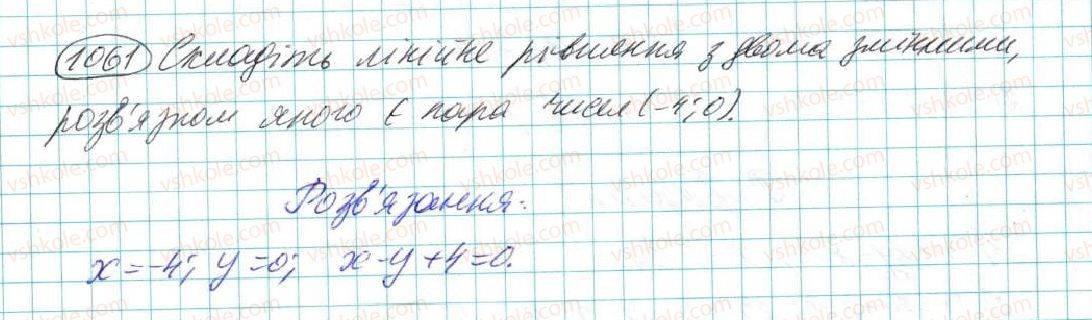 1061 Складіть лінійне рівняння з двома змінними,
розв'язком якого є пара чисел (-4; 0).
Розв'язання:
x = -4; y = 0; x - y + 4 = 0.